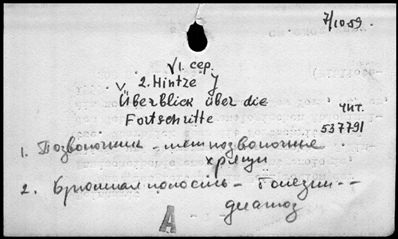 7/1059.
VI. сер.
V. 2. Hintze J
Überblick über die
Fortschritte
Чит.
537791
1. Позвоночник - межпозвоночные
хрящи
2. Брюшная полость - болезни --
диагноз
A